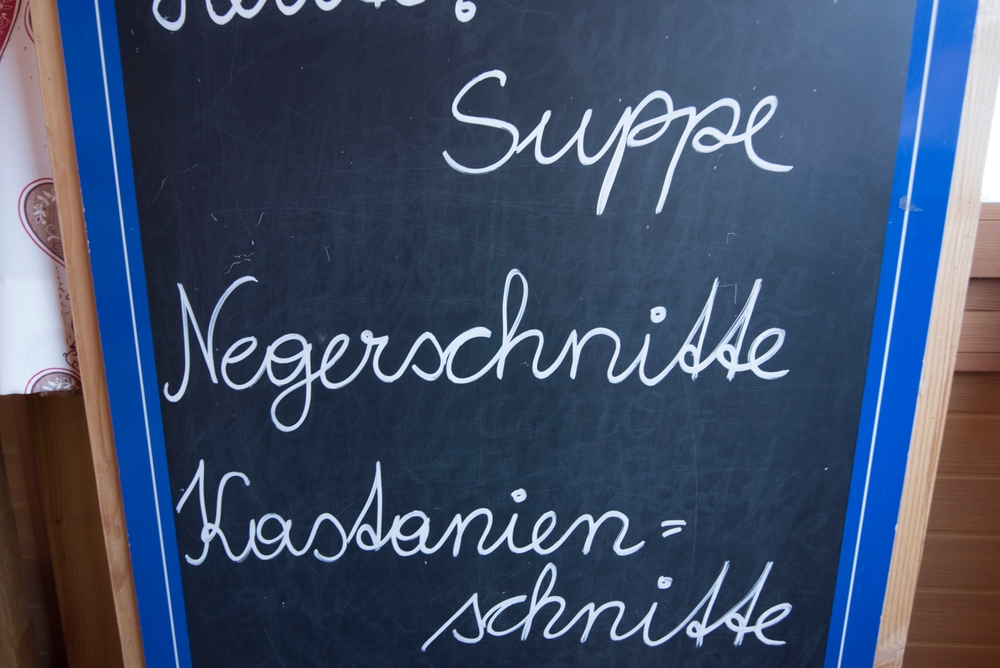 Suppe
Negerschnitte
Kastanien=
schnitte